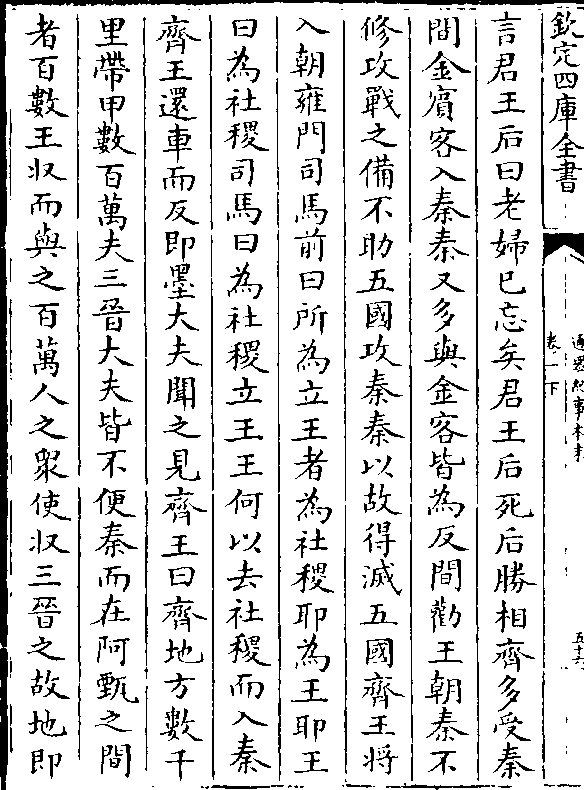 欽定四庫全書
通鑑紀事本末
卷一下
五十六
言君王后曰老婦已忘矣君王后死后勝相齊多受秦
間金賓客入秦秦又多與金客皆為反間勸王朝秦不
修攻戰之備不助五國攻秦秦以故得滅五國齊王將
入朝雍門司馬前曰所為立王者為社稷耶為王耶王
曰為社稷司馬曰為社稷立王王何以去社稷而入秦
齊王還車而反即墨大夫聞之見齊王曰齊地方數千
里帶甲數百萬夫三晉大夫皆不便秦而在阿甄之間
者百數王收而與之百萬人之眾使收三晉之故地即